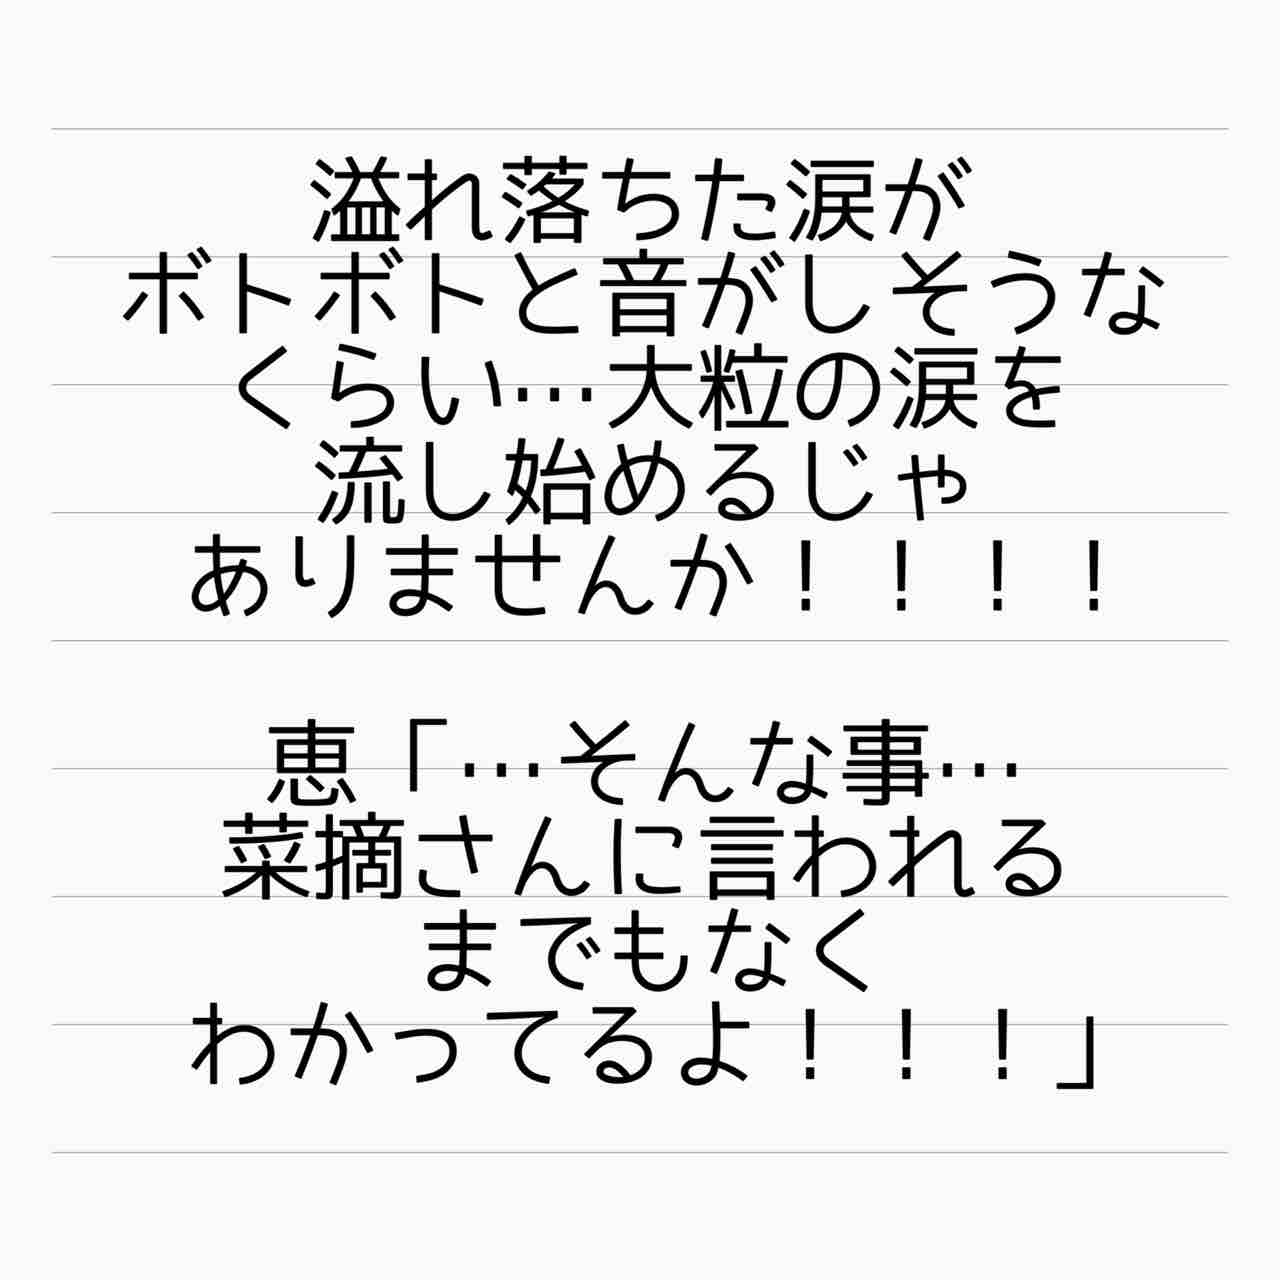 溢れ落ちた涙が
ボトボトと音がしそうな
くらい…大粒の涙を
流し始めるじゃ
ありませんか！！！！
恵「…そんな事…
菜摘さんに言われる
までもなく
わかってるよ！！！」